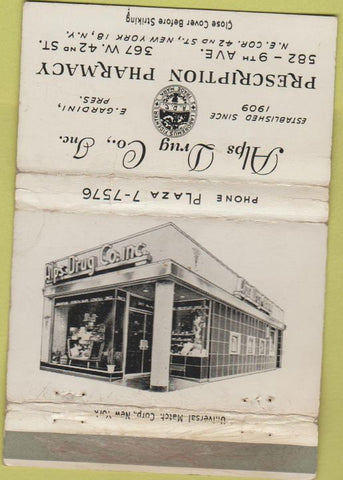 Alps Drug Co., Inc.
ESTABLISHED SINCE
1909
E. GARDINI,
PRES.
PRESCRIPTION PHARMACY
582 – 9TH AVE.
367 W. 42ND ST.
N.E. COR. 42ND ST., NEW YORK 18, N.Y.
Close Cover Before Striking
PHONE PLAZA 7-7576
Alps Drug Co. Inc.
Universal Match Corp., New York